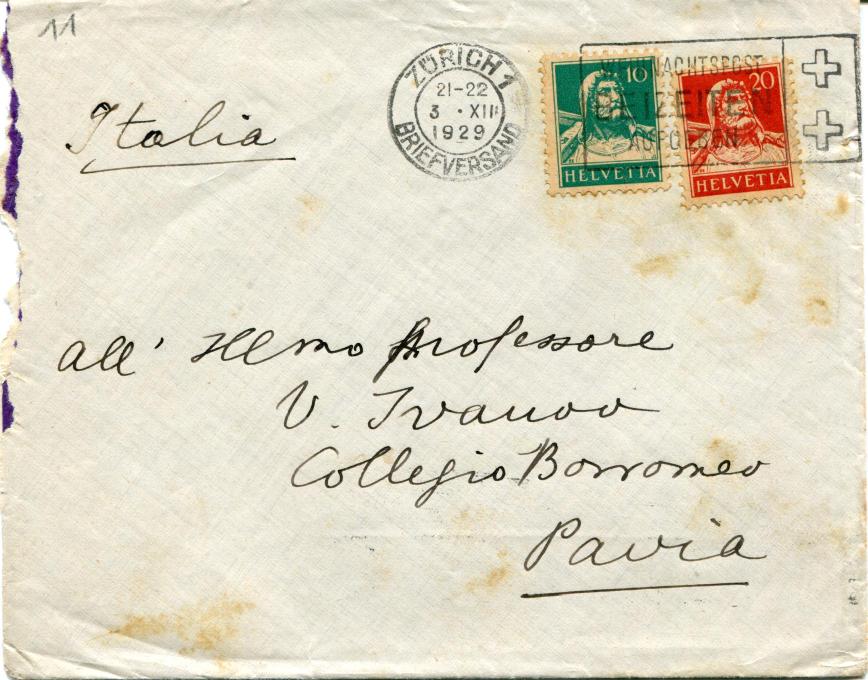 11
ZÜRICH 1
21-22
3 · XII
1929
BRIEFVERSAND
10
HELVETIA
20
HELVETIA
WEIHNACHTSPOST
BEIZEITEN
AUFGEBEN
Italia
All' Illmo Professore
V. Ivanov
Collegio Borromeo
Pavia